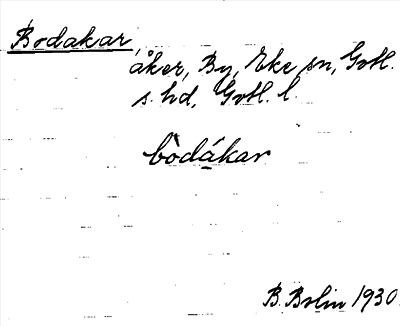 Bodakar,
åker, By, Eke sn, Gotl.
s. hd, Gotl. l.
bòdákar
B. Bolin 1930.